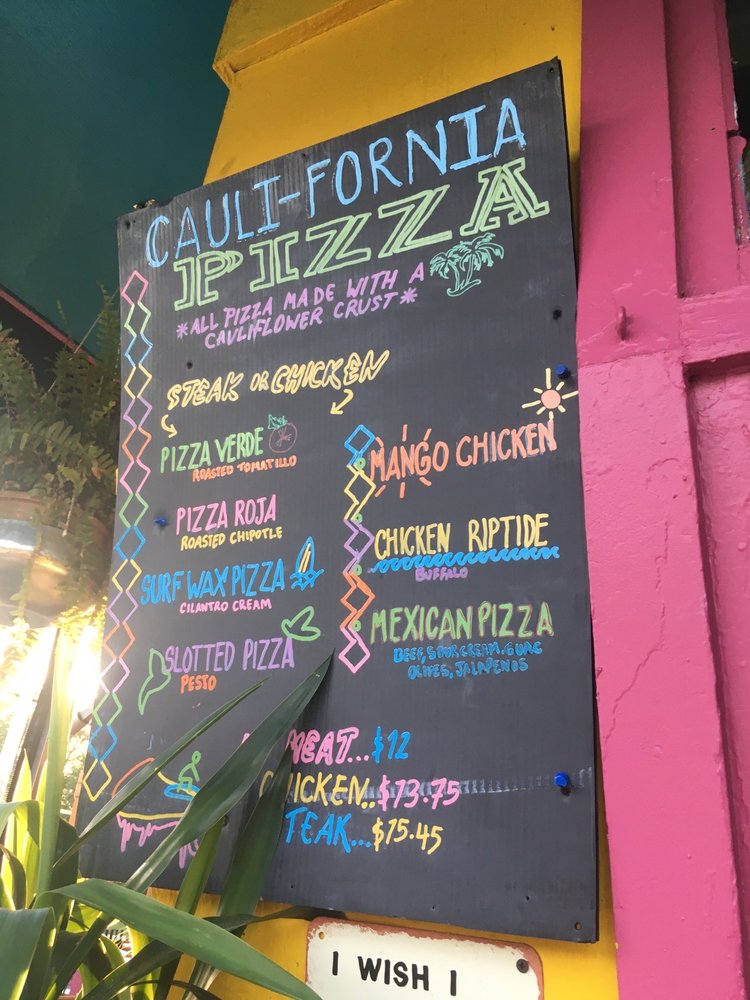 CAULI-FORNIA
PIZZA
*ALL PIZZA MADE WITH A
CAULIFLOWER CRUST*
STEAK OR CHICKEN
PIZZA VERDE
ROASTED TOMATILLO
PIZZA ROJA
ROASTED CHIPOTLE
SURF WAX PIZZA
CILANTRO CREAM
SLOTTED PIZZA
PESTO
MANGO CHICKEN
CHICKEN RIPTIDE
BUFFALO
MEXICAN PIZZA
BEEF, SOUR CREAM, GUAC
OLIVES, JALAPENOS
MEAT...$12
CHICKEN..$13.75
TEAK...$15.45
I WISH I